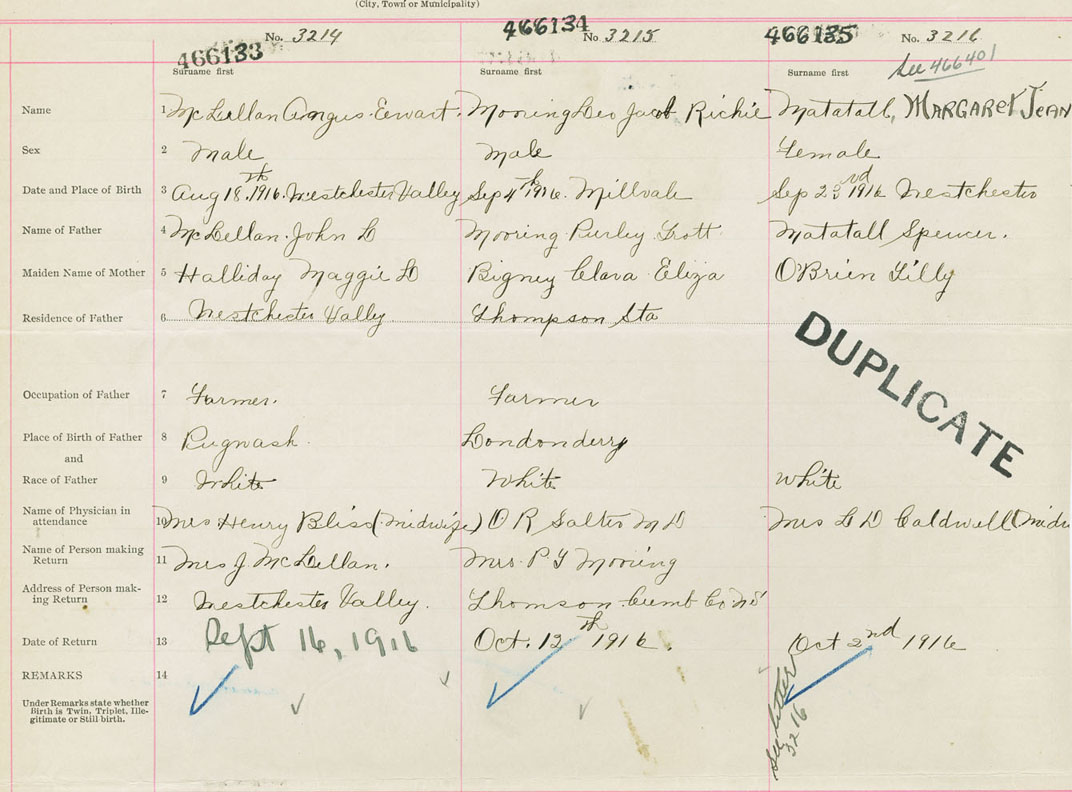 (City, Town or Municipality)
466133 No. 3214 466134 No 3215 466135 No. 3216
Surname first Surname first Surname first See 466401
Name 1 McLellan Angus Ewart. Mooring Leo Jacob Richie Matatall, MARGARET JEAN
Sex 2 Male Male Female
Date and Place of Birth 3 Aug 18th 1916. Westchester Valley Sep 4th 1916. Millvale Sep 23rd 1916 Westchester
Name of Father 4 McLellan John D Mooring Purley Trott Matatall Spencer.
Maiden Name of Mother 5 Halliday Maggie D Bigney Clara Eliza O'Brien Lilly
Residence of Father 6 Westchester Vally Thompson Sta
DUPLICATE
Occupation of Father 7 Farmer. Farmer
Place of Birth of Father 8 Pugwash Londonderry
and
Race of Father 9 White White White
Name of Physician in
attendance 10 Mrs Henry Bliss (Midwife) O R Salter M D Mrs L D Caldwell (Midw
Name of Person making
Return 11 Mrs J McLellan. Mrs. P T Mooring
Address of Person mak-
ing Return 12 Westchester Valley. Thomson Cumb Co NS
Date of Return 13 Sept 16, 1916 Oct. 12th 1916. Oct 2nd 1916
REMARKS 14
Under Remarks state whether
Birth is Twin, Triplet, Ille-
gitimate or Still birth.
See letter
3216